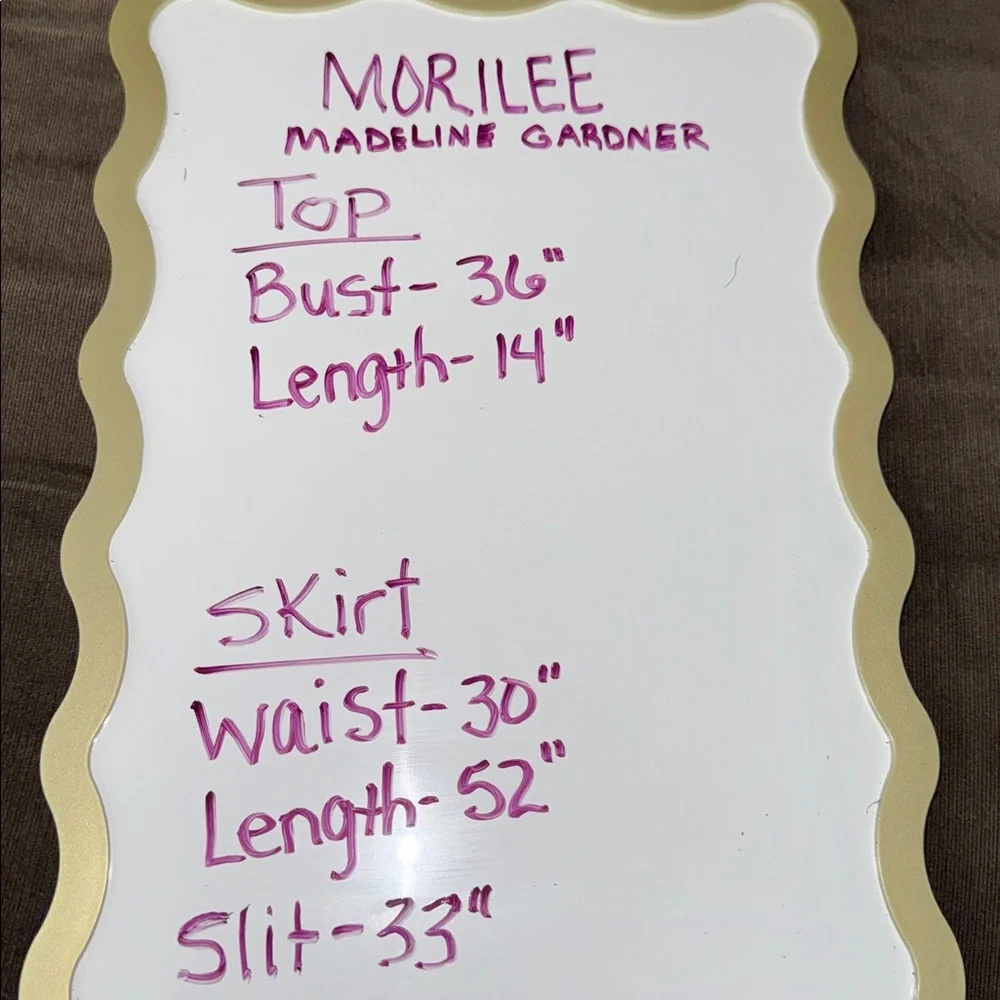 MORILEE
MADELINE GARDNER
Top
Bust- 36"
Length- 14"
Skirt
Waist- 30"
Length- 52"
Slit- 33"